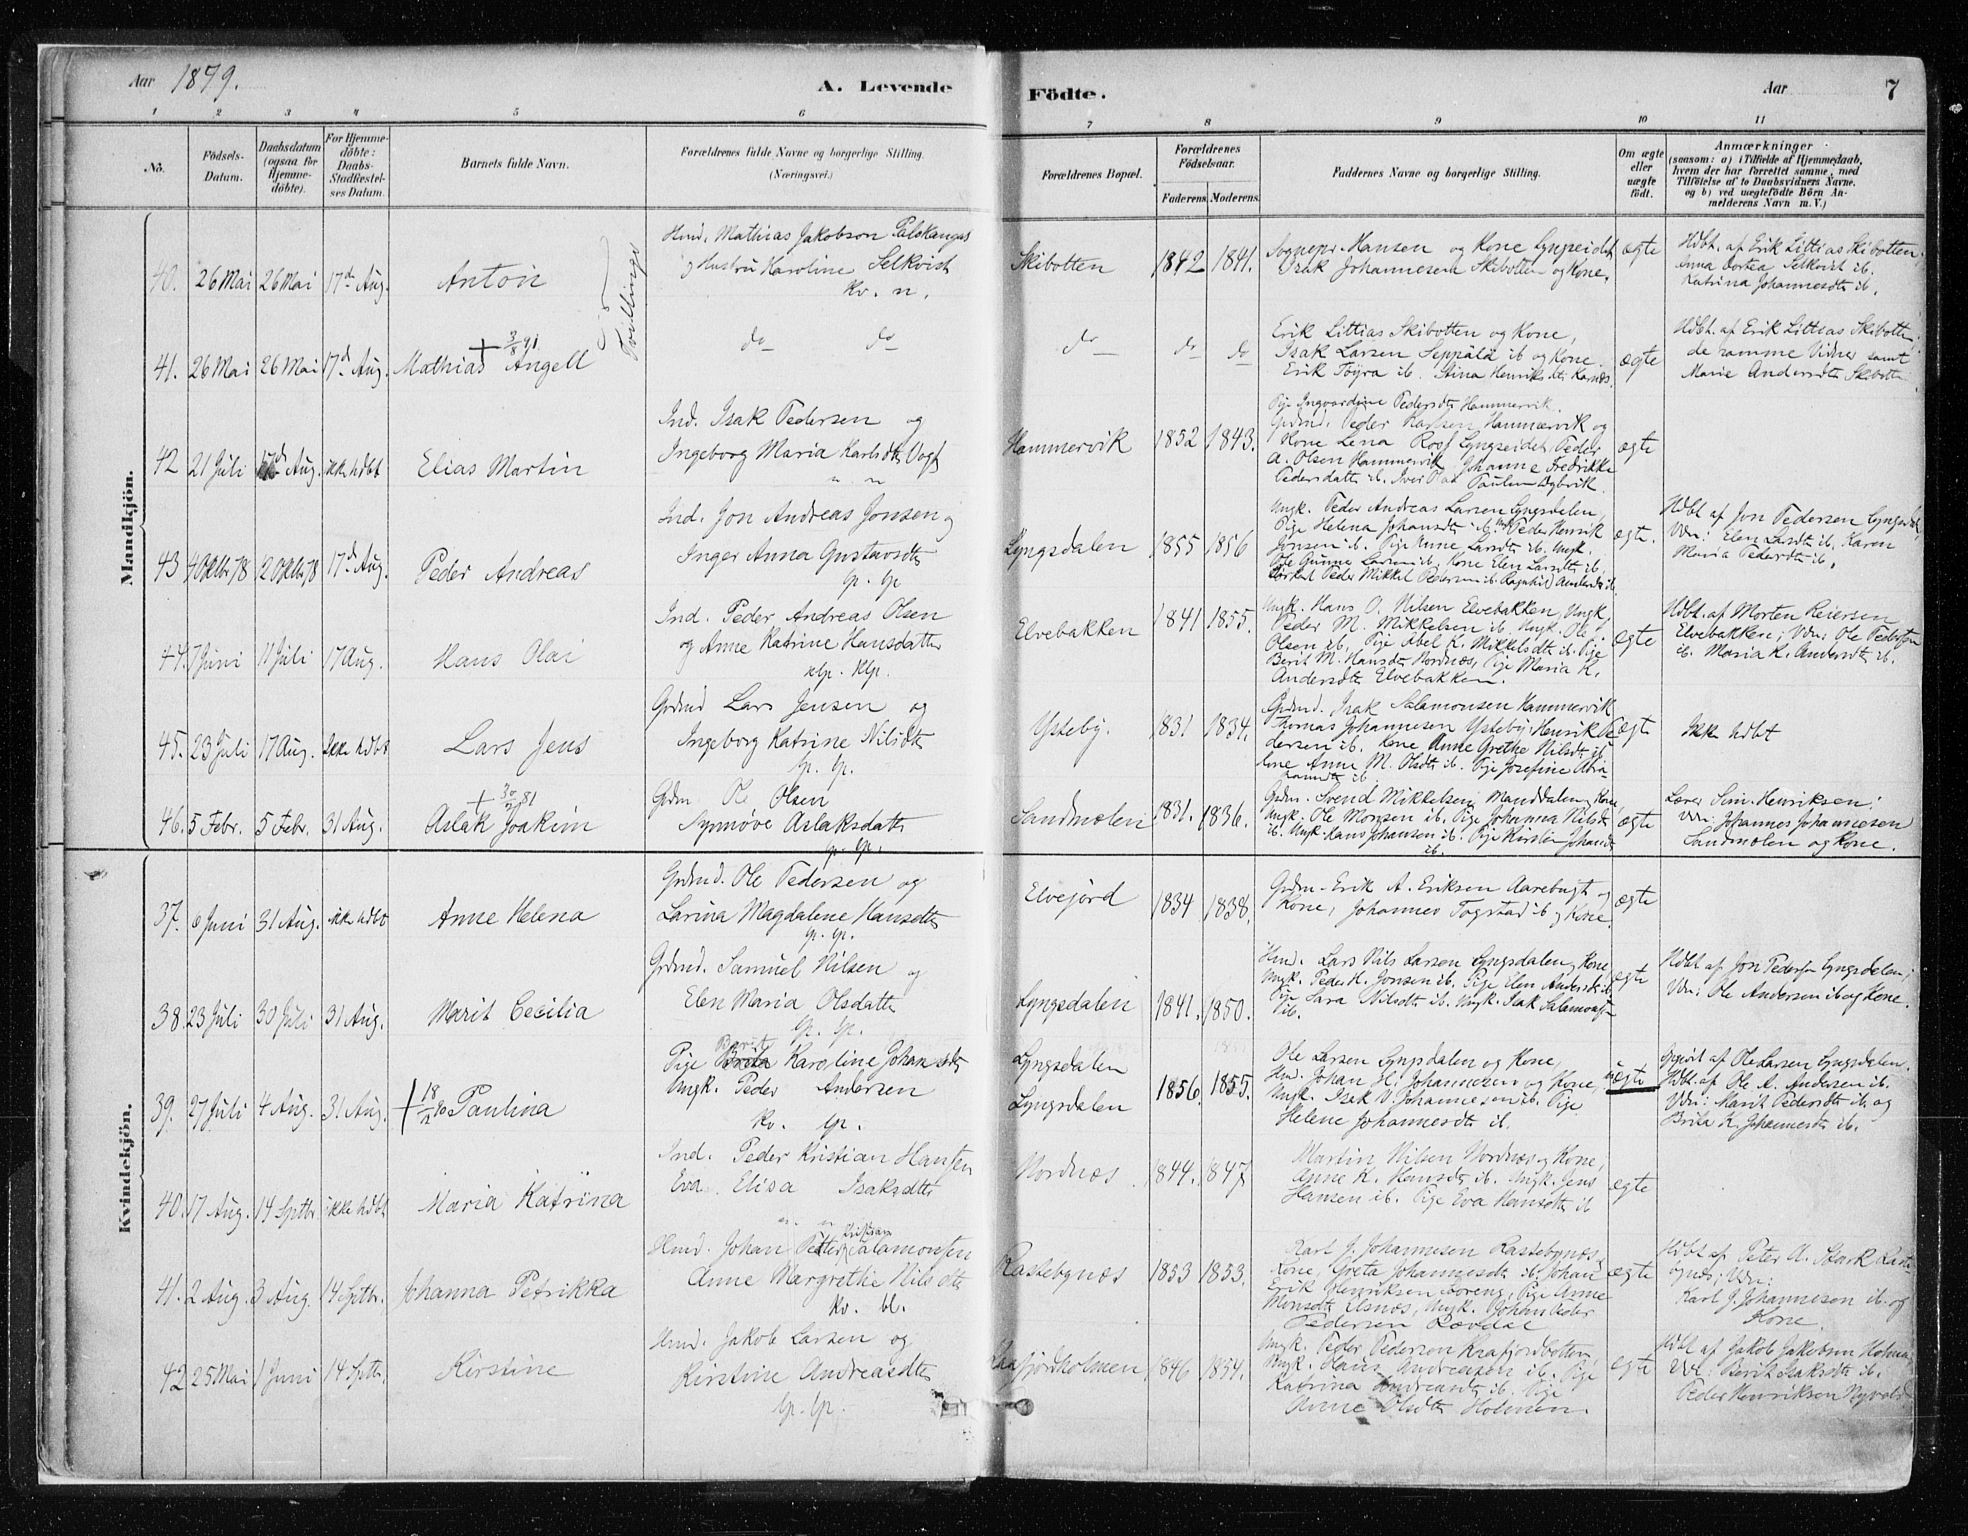 Aar 1879. A. Levende Födte. Aar 7
1 2 3 4 5 6 7 8 9 10 11
No.
Födsels-Datum.
Daabsdatum (ogsaa for Hjemmedöbte).
For Hjemmedöbte: Daabs-Stadfæstelses Datum.
Barnets fulde Navn.
Forældrenes fulde Navne og borgerlige Stilling. (Næringsvei.)
Forældrenes Bopæl.
Forældrenes Födselsaar.
Faderens. Moderens.
Faddernes Navne og borgerlige Stilling.
Om ægte eller uægte födt.
Anmærkninger
(saasom: a) i Tilfælde af Hjemmedaab,
hvem der har forrettet samme, med
Tilföielse af to Daabsvidners Navne,
og b) ved uægtefödte Börn An-
melderens Navn m. V.)
Mandkjön.
40. 26 Mai 26 Mai 17d Aug. Anton
Tvillinge
Hmd. Mathias Jakobson Palskangas
og Hustru Karoline Selkvist
kv. n.
Skibotten 1842 1841.
Sognepr. Hansen og Kone Lyngseidet
Isak Johannesen Skibotten og Kone.
ægte
Hdbt. af Erik Littias Skibotten;
Anna Dortea Selkvist ib.
Katrina Johannesdt ib.
41. 26 Mai 26 Mai 17d Aug. Mathias Angell
do do
do do do
Erik Littias Skibotten og Kone,
Isak Larsen Seppälä ib og Kone.
Erik Töyrä ib. Stina Henriksdt Karnæs.
ægte
Hdbt. af Erik Littias Skibotten;
de samme Vidner samt
Marie Andersdt Skibotten
42 21 Juli 17d Aug. ikke hdbt Elias Martin
Ind. Isak Pedersen og
Ingeborg Maria Karlsdt Vogt
n n
Hammervik 1852 1843.
Pige Ingvardine Pedersdt Hammervik.
Grdmd. Peder Karlsen Hammervik og
Kone Lena Roof Lyngseidet Peder
A. Olsen Hammervik Johanne Fredrikke
Pedersdatter ib. Iver Olai Paulsen Dybvik.
ægte
43 4 Oktbr 78 20 Oktbr 78 17d Aug. Peder Andreas
Ind. Jon Andreas Jonsen og
Inger Anna Gustavsdt
lp. lp
Lyngsdalen 1855 1856
Ungk. Peder Andreas Larsen Lyngsdalen,
Pige Helena Johansdt ib. Ungk Peder Henrik
Jonsen ib. Pige Anne Larsdt ib. Ungk.
Ole Gunne Larsen ib, Kone Elen Larsdt ib.
ægte.
Hdbt af Jon Pedersen Lyngsdal,
Vdn: Elen Larsdt ib. Karen
Maria Pedersdt ib.
44. 7 Juni 11 Juli 17 Aug. Hans Olai
Ind. Peder Andreas Olsen
og Anne Katrine Hansdatter
klp. klp.
Elvebakken 1841 1855.
Ungk. Hans O. Nilsen Elvebakken, Ungk.
Peder M. Mikkelsen ib. Ungk. Ole
Olsen ib, Pige Abel K. Mikkelsdt ib. Pige
Berit M. Hansdt Nordnæs, Pige Maria K.
Andersdt Elvebakken.
ægte
Hdbt. af Morten Reiersen
Elvebakken; Vdn: Ole Pedersen
ib. Maria K. Andersdt ib.
45. 23 Juli 17 Aug. Ikke hdbt Lars Jens
Grdmd Lars Jensen og
Ingeborg Katrine Nilsdt
lp. lp.
Ysteby. 1831 1834.
Grdmd. Isak Salamonsen Hammervik
Thomas Johannesen Ysteby. Henrik Pe-
dersen ib. Kone Anne Grethe Nilsdt ib
Kone Anne M. Olsdt ib. Pige Josefine Abra-
hamsdt ib.
ægte
Ikke hdbt
46. 5 Febr. 5 Febr. 31 Aug. Aslak Joakim
Grdm Ole Olsen
Synnöve Aslaksdatt
lp. lp.
Sandmælen 1831. 1836.
Grdm. Svend Mikkelsen Manddalen Kone,
Ungk. Ole Monsen ib. Pige Johanna Nilsdt
ib. Ungk. Hans Johansen ib. Pige Kirsten Johansdt
ib.
ægte
Lærer Sim. Henriksen;
Vdn: Johannes Johannesen
Sandmælen og Kone.
Kvindekjön.
37. 6 Juni 31 Aug. ikke hdbt Anne Helena
Grdmd. Ole Pedersen og
Larina Magdalene Hansdt
lp. lp.
Elvejord 1834 1838.
Grdm. Erik A. Eriksen Aarebugt og
Kone, Johannes Fogstad ib og Kone
ægte
38. 23 Juli 30 Juli 31 Aug. Marit Cecilia
Grdmd. Samuel Nilsen og
Elen Maria Olsdatt
lp. lp.
Lyngsdalen 1841. 1850.
Hmd. Lars Nils Larsen Lyngsdalen, Kone,
Ungk. Peder H. Jonsen ib. Pige Elen Andersdt ib.
Pige Sara Nilsdt ib. Ungk. Isak Salamons.
ib.
ægte
Hdbt af Jon Pedersen Lyngsdalen;
Vdn: Ole Andersen ib og Kone.
39. 27 Juli 4 Aug. 31 Aug. Paulina
Pige Berit Karoline Johansdt
Ungk. Peder Andersen
kv. lp.
Lyngsdalen
Lyngsdalen
1856. 1855.
Ole Larsen Lyngsdalen og Kone,
Hmd. Johan H. Johannesen og Kone,
Ungk. Isak V. Johannesen ib. Pige
Helene Johannesdt ib.
uægte
Opgivet af Ole Larsen Lyngsdalen.
Hdbt. af Ole A. Andersen ib.
Vdn: Marit Pedersdt ib og
Brita K. Johannesdt ib.
40. 17 Aug. 14 Septbr ikke hdbt Maria Katrina
Ind. Peder Kristian Hansen
Eva Elisa Isaksdt
n. n
Nordnæs 1844. 1847
Martin Nilsen Nordnæs og Kone,
Anne K. Hansdt ib. Ungk. Jens
Hansen ib. Pige Eva Hansdt ib
ægte
41. 2 Aug. 3 Aug. 14 Septbr. Johanna Petrikka
Hmd. Johan Petter Kristian Salamonsen
Anne Margrethe Nilsdt
kv. bl.
Rastebynæs 1853 1853.
Karl J. Johannesen Rastebynæs,
Kone, Greta Johannesdt ib. Johan
Erik Henriksen Soreng, Pige Anne
Monsdt Elsnæs, Ungk. Johan Peder
Pedersen Rövdal
ægte
Hdbt af Peter A. Stark Raste-
bynæs; Vdn:
Karl J. Johannesen ib. og
Kone.
42 25 Mai 1 Juni 14 Septbr. Kirstine
Hmd. Jakob Larsen og
Kirstine Andreasdt
lp. lp.
Kaafjordholmen 1846 1854.
Ungk. Peder Pederson Kaafjordbotten,
Ungk. Hans Andreasen ib. Pige
Katrina Andreasdt ib. Pige
Anne Olsdt Holmen.
ægte
Hdbt af Jakob Jakobsen Holmen
Vdn: Berit Isaksdt ib.
Peder Henriksen Nyvold